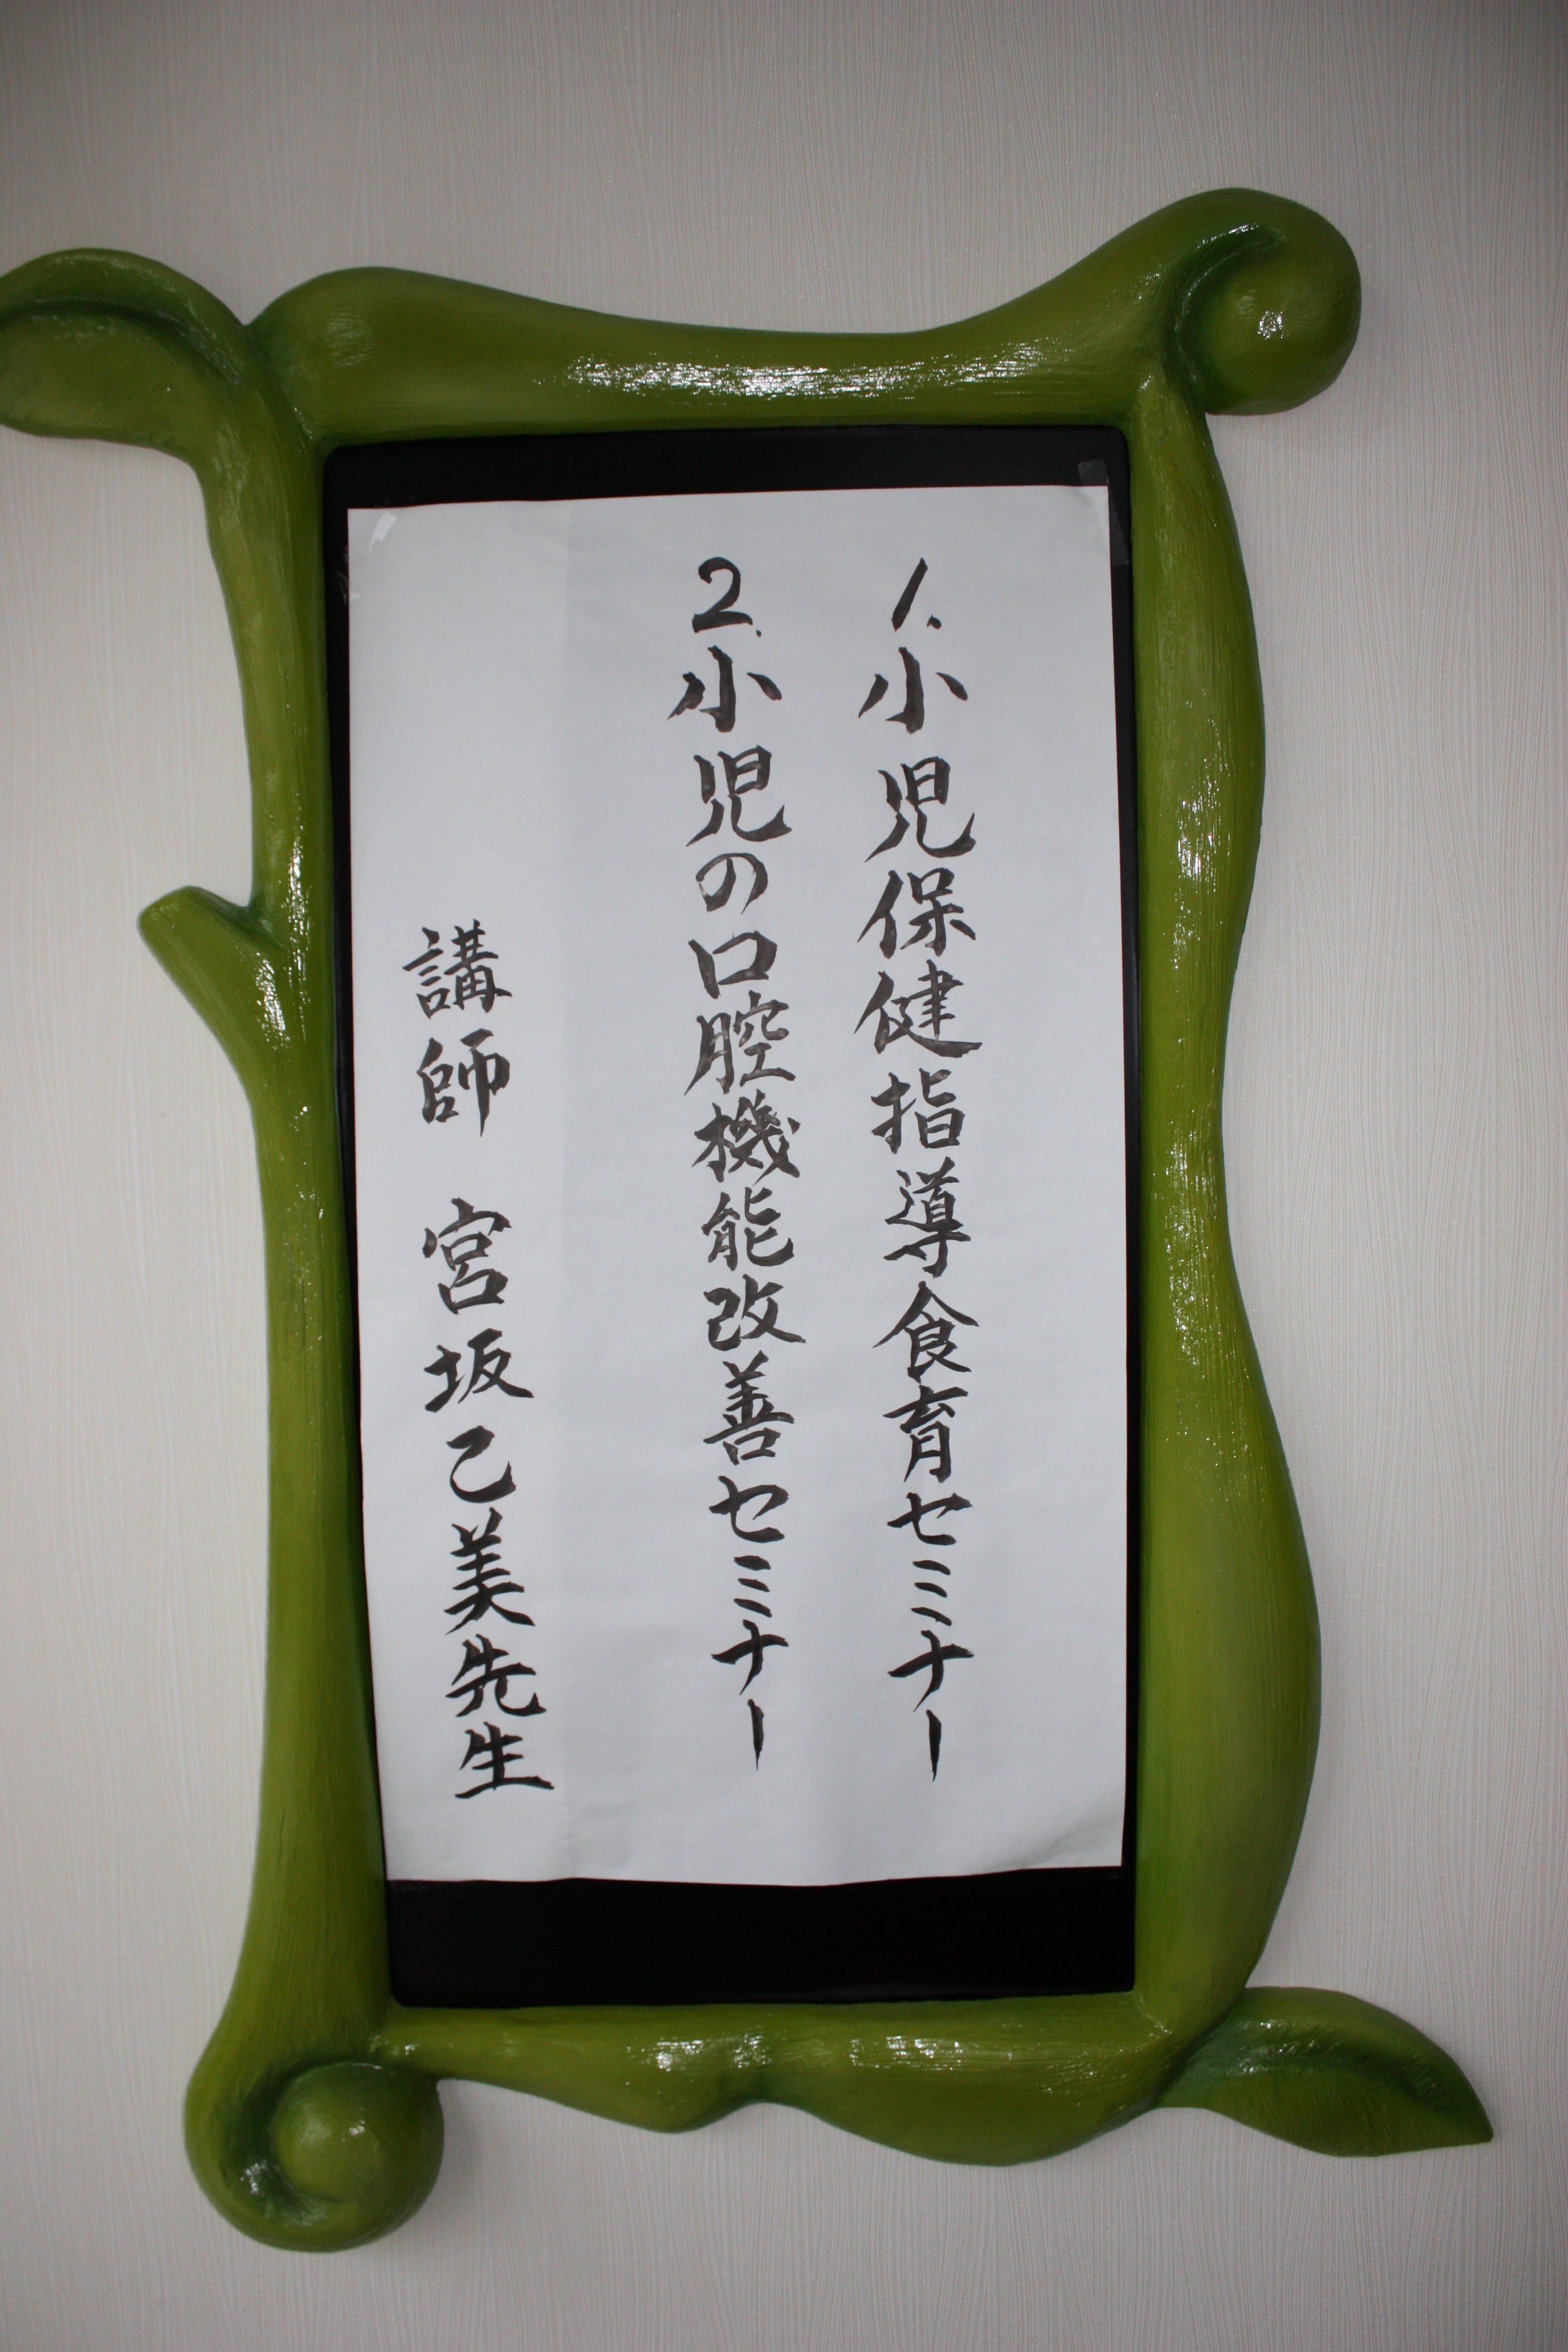 1.小児保健指導食育セミナー
2.小児の口腔機能改善セミナー
講師 宮坂乙美先生